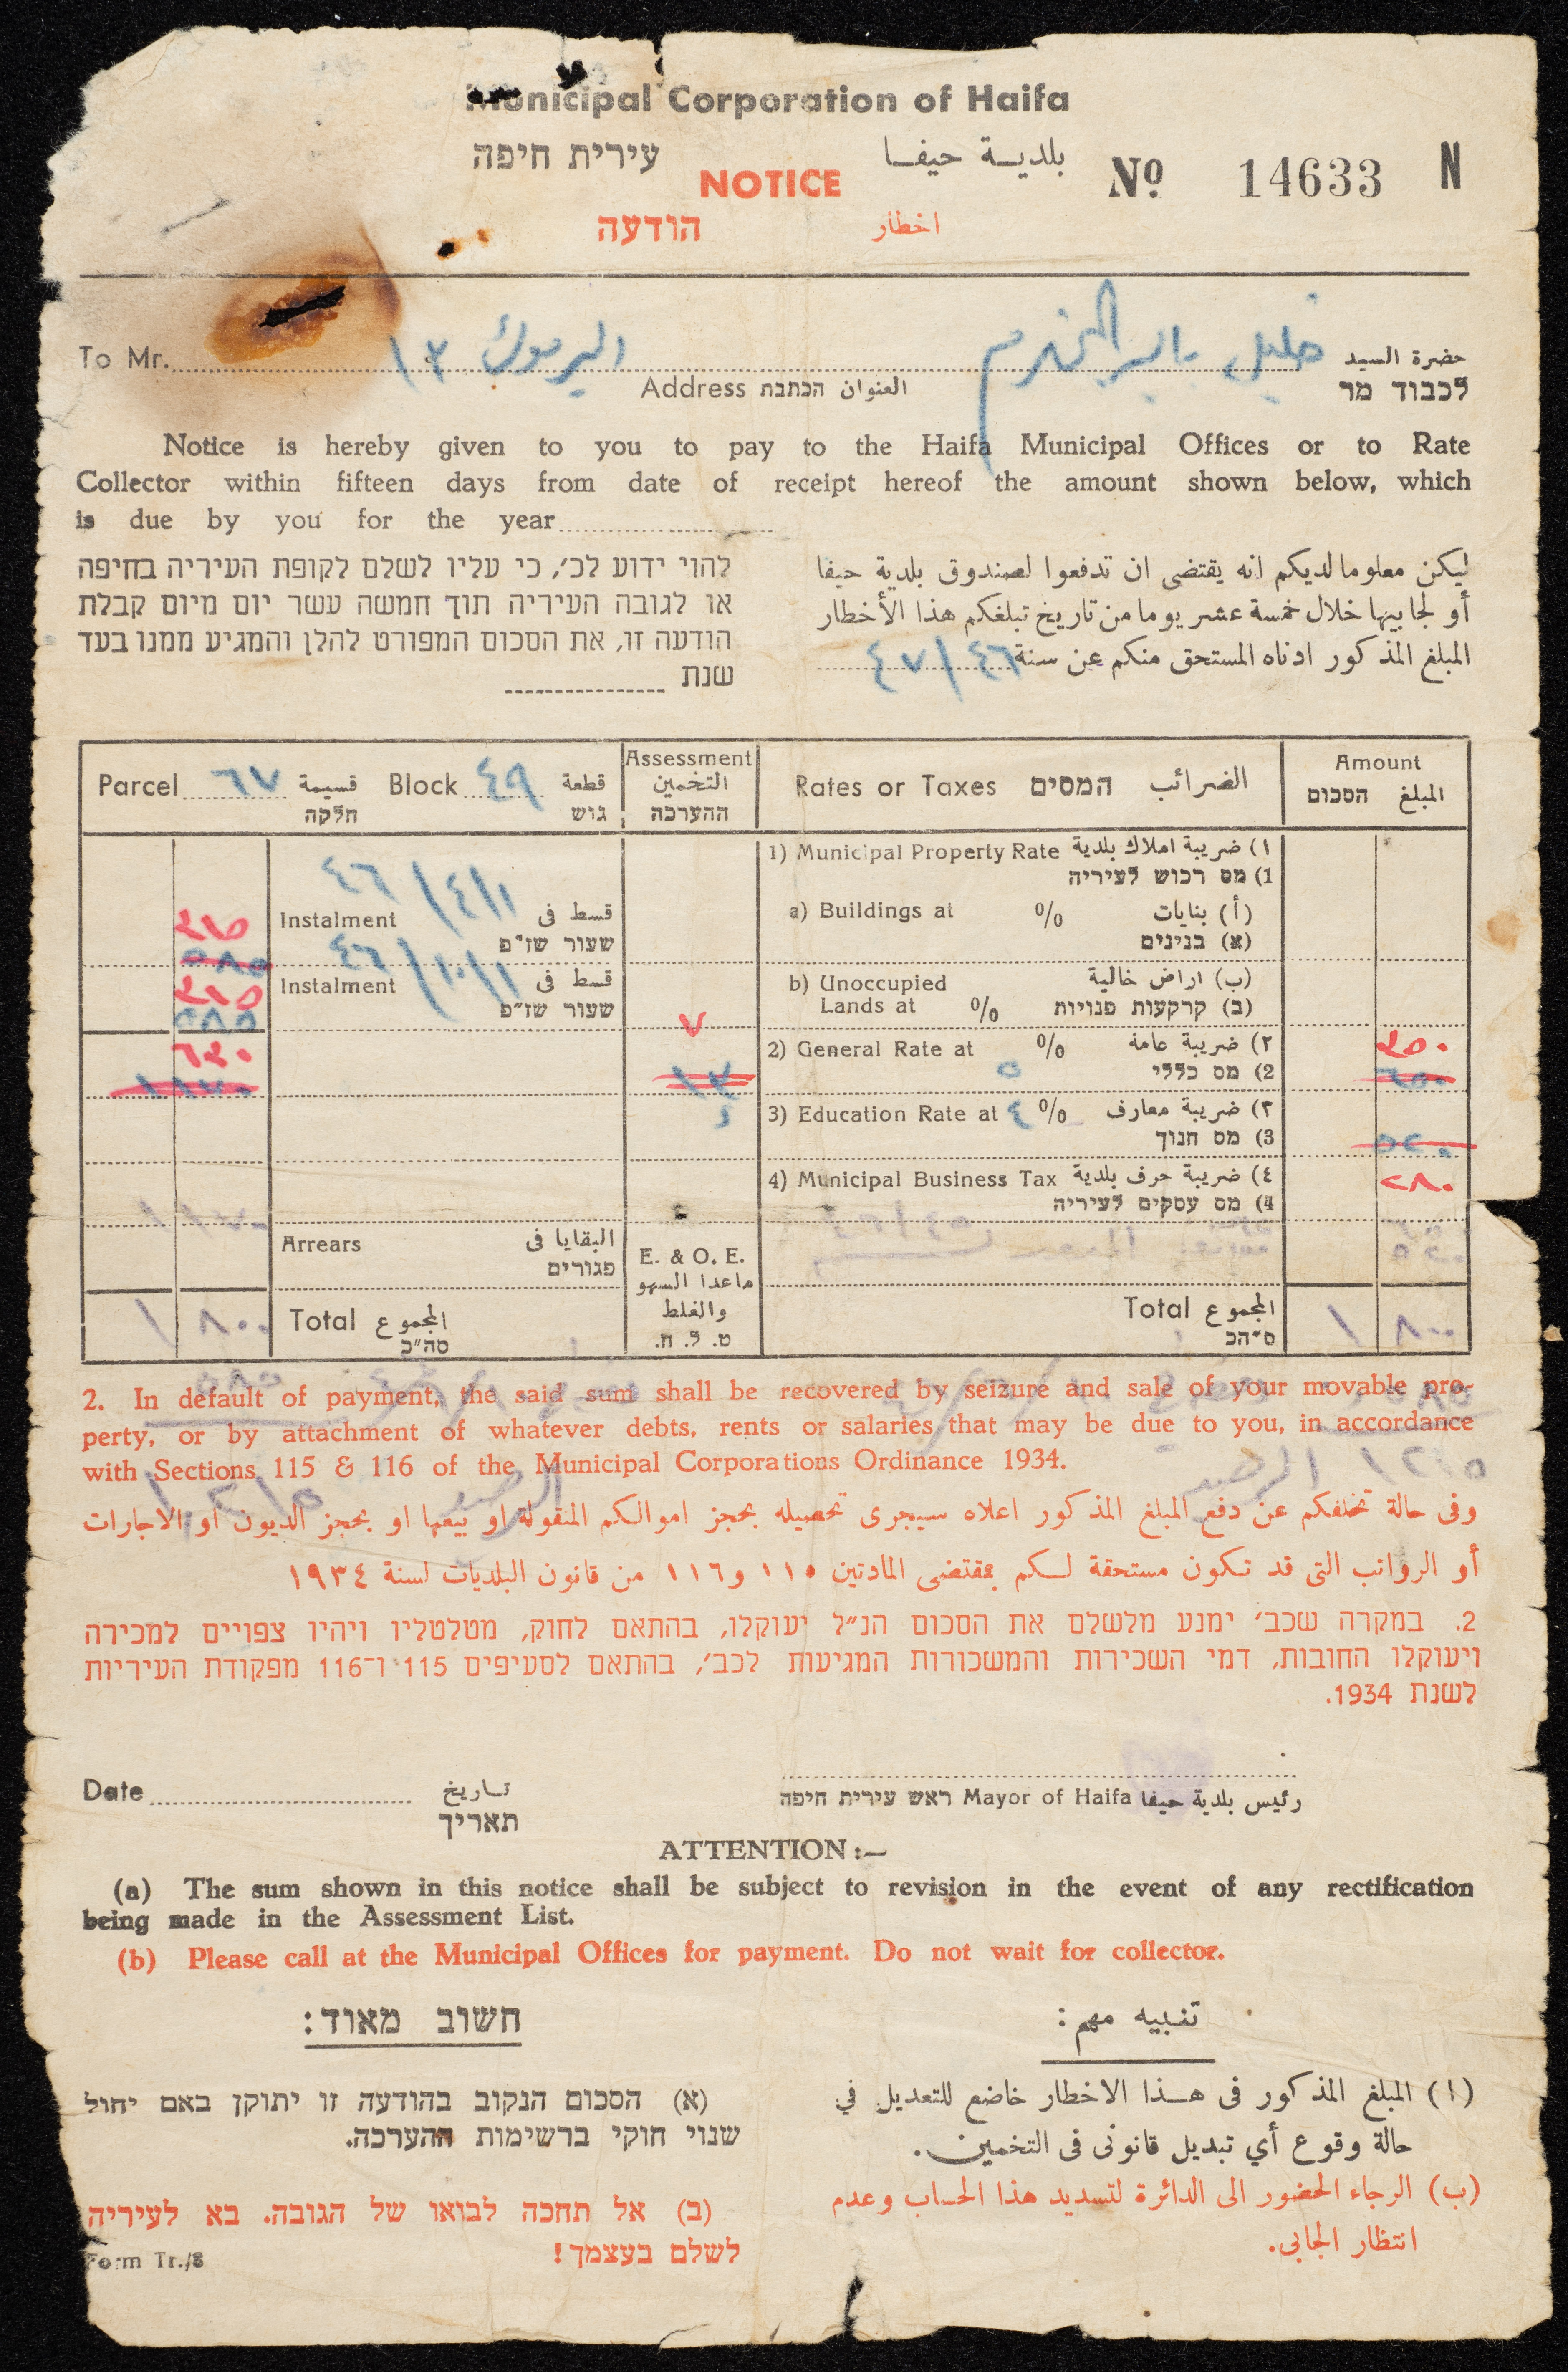 Municipal Corporation of Haifa
עירית חיפה
بلدية حيفا
No 14633 N
NOTICE
הודעה
اخطار
To Mr.
حضرة السيد
לכבוד מר
خليل
اليرموك ١٣
Address הכתבת العنوان
Notice is hereby given to you to pay to the Haifa Municipal Offices or to Rate
Collector within fifteen days from date of receipt hereof the amount shown below, which
is due by you for the year
להוי ידוע לכ׳, כי עליו לשלם לקופת העיריה בחיפה
או לגובה העיריה תוך חמשה עשר יום מיום קבלת
הודעה זו, את הסכום המפורט להלן והמגיע ממנו בעד
שנת
ليكن معلوما لديكم انه يقتضى ان تدفعوا لصندوق بلدية حيفا
أو لجابيها خلال خمسة عشر يوما من تاريخ تبلغكم هذا الأخطار
المبلغ المذكور ادناه المستحق منكم عن سنة ٤٦/٤٧
Parcel ٦٧ قسيمة Block ٤٩ قطعة
חלקה גוש
Assessment
التخمين
ההערכה
Rates or Taxes המסים الضرائب
Amount
הסכום المبلغ
Instalment قسط فى ١/٤/٤٦
שעור שז"פ
٣١٥
٥٨٥
Instalment قسط فى ١/١٠/٤٦
שעור שז"פ
٣١٥
٥٨٥
٦٣٠
١١٧٠
٧
١٣
1) Municipal Property Rate ١) ضريبة املاك بلدية
1) מס רכוש לעיריה
a) Buildings at % (أ) بنايات
(א) בנינים
b) Unoccupied (ب) اراض خالية
Lands at % (ב) קרקעות פנויות
2) General Rate at ٥ % ٢) ضريبة عامة
2) מס כללי
٣٥٠
٦٥٠
3) Education Rate at ٤ % ٣) ضريبة معارف
3) מס חנוך
٥٢٠
4) Municipal Business Tax ٤) ضريبة حرف بلدية
4) מס עסקים לעיריה
٢٨٠
Arrears البقايا فى
פגורים
E. & O. E.
ماعدا السهو
والغلط
ט. ל. ח.
Total المجموع
סה"כ
١ ٨٠٠
Total المجموع
ס"הכ
١ ٨٠٠
2. In default of payment, the said sum shall be recovered by seizure and sale of your movable pro-
perty, or by attachment of whatever debts, rents or salaries that may be due to you, in accordance
with Sections 115 & 116 of the Municipal Corporations Ordinance 1934.
وفى حالة تخلفكم عن دفع المبلغ المذكور اعلاه سيجرى تحصيله بحجز اموالكم المنقولة او بيعها او بحجز الديون او الاجارات
أو الرواتب التى قد تكون مستحقة لكم بمقتضى المادتين ١١٥ و١١٦ من قانون البلديات لسنة ١٩٣٤
2. במקרה שכב׳ ימנע מלשלם את הסכום הנ״ל יעוקלו, בהתאם לחוק, מטלטליו ויהיו צפויים למכירה
ויעוקלו החובות, דמי השכירות והמשכורות המגיעות לכב׳, בהתאם לסעיפים 115 ו־116 מפקודת העיריות
לשנת 1934.
Date تاريخ
תאריך
ראש עירית חיפה Mayor of Haifa رئيس بلدية حيفا
ATTENTION :—
(a) The sum shown in this notice shall be subject to revision in the event of any rectification
being made in the Assessment List.
(b) Please call at the Municipal Offices for payment. Do not wait for collector.
חשוב מאוד:
(א) הסכום הנקוב בהודעה זו יתוקן באם יחול
שנוי חוקי ברשימות ההערכה.
(ב) אל תחכה לבואו של הגובה. בא לעיריה
לשלם בעצמך!
تنبيه مهم :
(ا) المبلغ المذكور فى هذا الاخطار خاضع للتعديل في
حالة وقوع أي تبديل قانونى فى التخمين.
(ب) الرجاء الحضور الى الدائرة لتسديد هذا الحساب وعدم
انتظار الجابى.
Form Tr./8